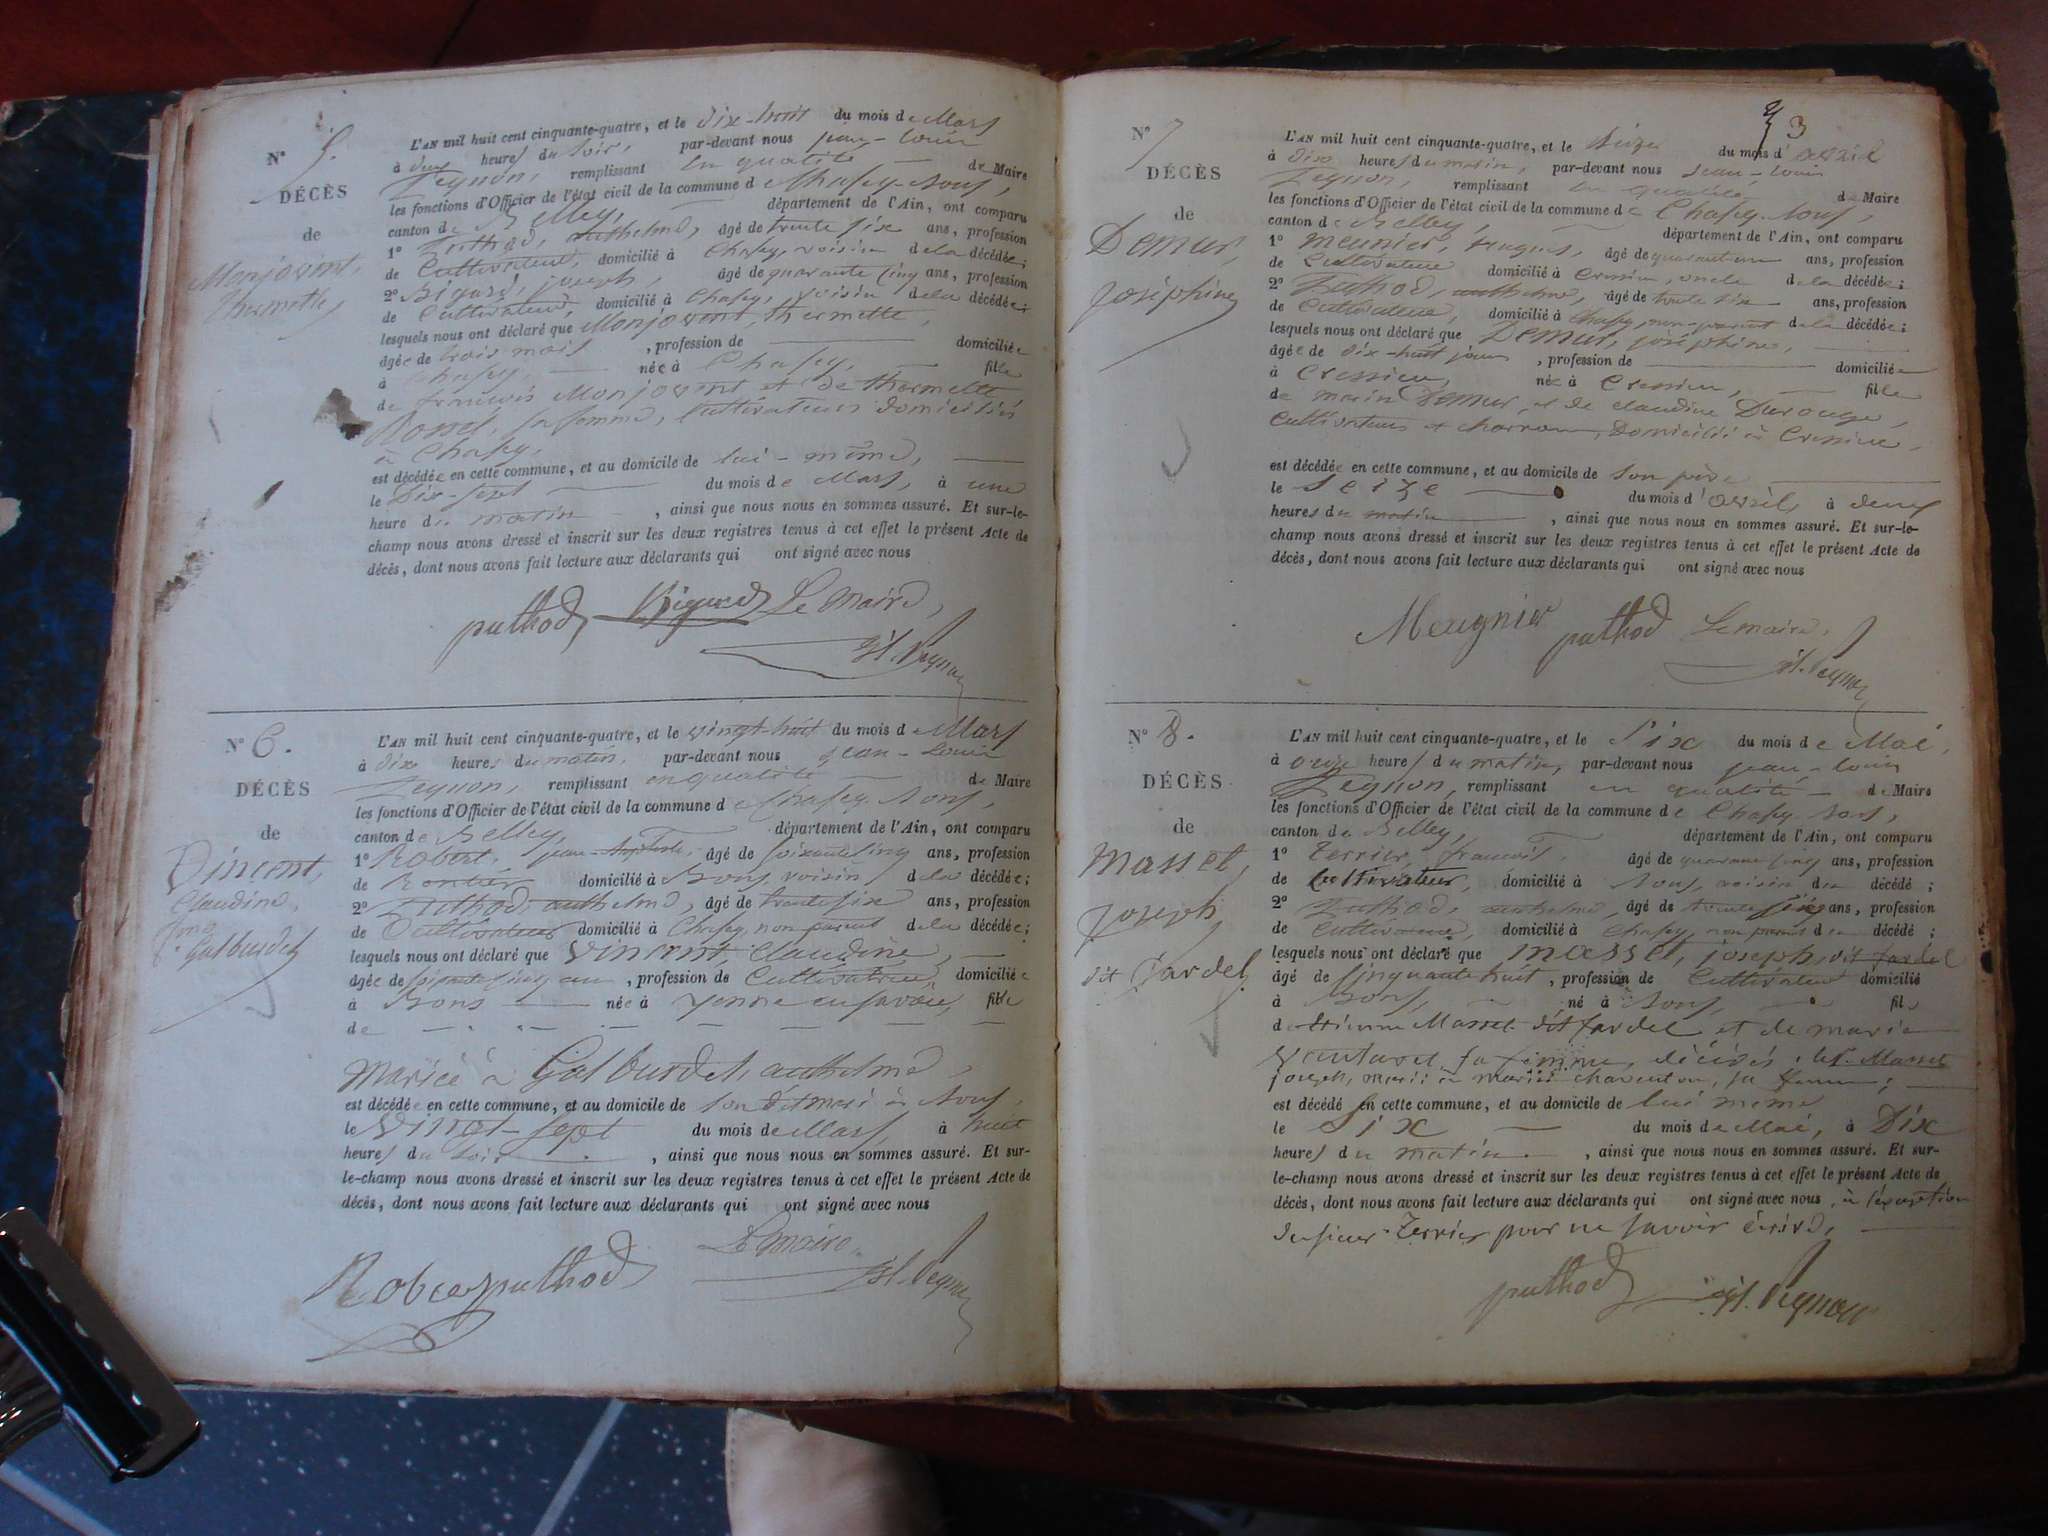 N° 5.
DÉCÈS
de
Monjovent,
thermette,
L'AN mil huit cent cinquante-quatre, et le dix-huit du mois de Mars
à deux heures du soir, par-devant nous jean-louis
Peynon, remplissant en qualité de Maire
les fonctions d'Officier de l'état civil de la commune d Chasey-Bons,
canton de Belley, département de l'Ain, ont comparu
1° Puthod, anthelme, âgé de trente six ans, profession
de Cultivateur, domicilié à Chasey, voisin de la décédée;
2° Bigard, joseph, âgé de quarante cinq ans, profession
de Cultivateur, domicilié à Chasey, voisin de la décédée;
lesquels nous ont déclaré que Monjovent, thermette,
âgée de trois mois, profession de domiciliée
à Chasey, née à Chasey, fille
de françois Monjovent et de thermette
sa femme, Cultivateurs domiciliés
à Chasey,
est décédée en cette commune, et au domicile de lui-même,
le Dix-sept du mois de Mars, à une
heure du matin, ainsi que nous nous en sommes assuré. Et sur-le-
champ nous avons dressé et inscrit sur les deux registres tenus à cet effet le présent Acte de
décès, dont nous avons fait lecture aux déclarants qui ont signé avec nous
puthod Bigard Le Maire,
jl. Peynon
N° 6.
DÉCÈS
de
Vincent,
Claudine,
fme
Galburdet
L'AN mil huit cent cinquante-quatre, et le vingt-huit du mois de Mars
à dix heures du matin, par-devant nous jean-Louis
Peynon, remplissant en qualité de Maire
les fonctions d'Officier de l'état civil de la commune d Chasey-Bons,
canton de Belley, département de l'Ain, ont comparu
1° Robert, jean-baptiste, âgé de soixante cinq ans, profession
de Rentier domicilié à Bons, voisin de la décédée;
2° Puthod, anthelme, âgé de trente six ans, profession
de Cultivateur domicilié à Chasey, non parent de la décédée;
lesquels nous ont déclaré que Vincent, Claudine,
âgée de cinq ans, profession de Cultivatrice, domiciliée
à Bons née à Yenne en savoie, fille
de
Mariée à Galburdet, anthelme,
est décédée en cette commune, et au domicile de son dit mari à Bons,
le Vingt-sept du mois de Mars, à huit
heures du soir, ainsi que nous nous en sommes assuré. Et sur-
le-champ nous avons dressé et inscrit sur les deux registres tenus à cet effet le présent Acte de
décès, dont nous avons fait lecture aux déclarants qui ont signé avec nous
Robert puthod Le Maire.
jl. Peynon
3
N° 7
DÉCÈS
de
Demur,
joséphine
L'AN mil huit cent cinquante-quatre, et le du mois d'avril
à dix heures du matin, par-devant nous jean-louis
Peynon, remplissant en qualité de Maire
les fonctions d'Officier de l'état civil de la commune de Chasey-Bons,
canton de Belley, département de l'Ain, ont comparu
1° Meunier, hugues, âgé de quarante un ans, profession
de Cultivateur domicilié à Cressieu, oncle de la décédée;
2° Puthod, anthelme, âgé de trente six ans, profession
de Cultivateur, domicilié à Chasey, non-parent de la décédée;
lesquels nous ont déclaré que Demur, joséphine,
âgée de dix-huit jours, profession de domiciliée
à Cressieu, née à Cressieu, fille
de marin Demur, et de claudine
Cultivateurs et charron, Domiciliés à Cressieu,
est décédée en cette commune, et au domicile de son père
le Seize du mois d'avril, à deux
heures du matin, ainsi que nous nous en sommes assuré. Et sur-le-
champ nous avons dressé et inscrit sur les deux registres tenus à cet effet le présent Acte de
décès, dont nous avons fait lecture aux déclarants qui ont signé avec nous
Meugnier puthod Le maire,
jl. Peynon
N° 8.
DÉCÈS
de
Masset,
joseph,
dit fardel
L'AN mil huit cent cinquante-quatre, et le Six du mois de Mai,
à onze heures du matin, par-devant nous jean-louis
Peynon, remplissant en qualité de Maire
les fonctions d'Officier de l'état civil de la commune de Chasey-Bons,
canton de Belley, département de l'Ain, ont comparu
1° Terrier, françois, âgé de quarante cinq ans, profession
de Cultivateur, domicilié à Bons, voisin du décédé;
2° Puthod, anthelme, âgé de trente six ans, profession
de Cultivateur, domicilié à Chasey, non parent du décédé;
lesquels nous ont déclaré que masset, joseph, dit fardel
âgé de cinquante huit, profession de Cultivateur domicilié
à Bons, né à Bons, fils
d'étienne Masset dit fardel et de marie
sa femme, décédés; led. Masset
joseph, marié à marie charenton, sa femme;
est décédé en cette commune, et au domicile de lui même
le Six du mois de Mai, à Dix
heures du matin, ainsi que nous nous en sommes assuré. Et sur-
le-champ nous avons dressé et inscrit sur les deux registres tenus à cet effet le présent Acte de
décès, dont nous avons fait lecture aux déclarants qui ont signé avec nous, à l'exception
du sieur Terrier pour ne savoir écrire,
puthod jl. Peynon